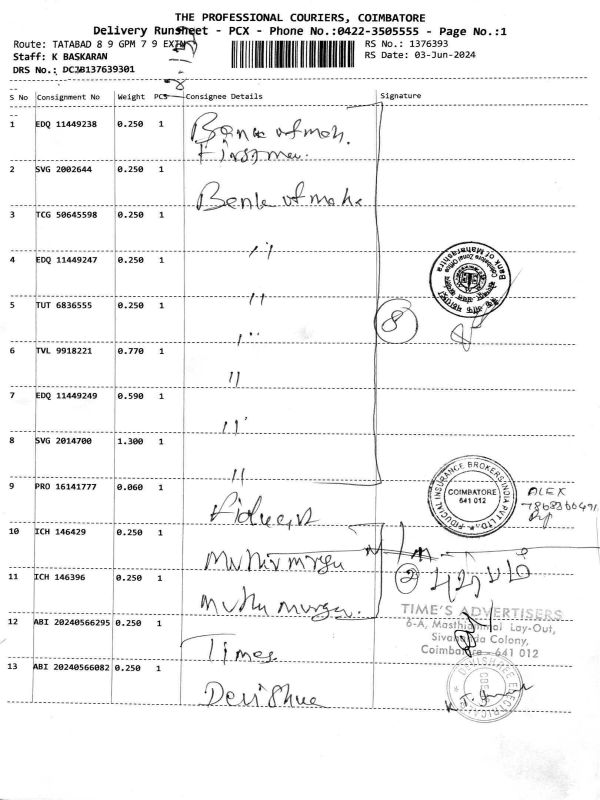 THE PROFESSIONAL COURIERS, COIMBATORE
Delivery Runsheet - PCX - Phone No.:0422-3505555 - Page No.:1
Route: TATABAD 8 9 GPM 7 9 EXTN
RS No.: 1376393
Staff: K BASKARAN
RS Date: 03-Jun-2024
DRS No.: DC2B137639301
S No Consignment No Weight PCS Consignee Details Signature
1 EDQ 11449238 0.250 1 Bank of mah.
2 SVG 2002644 0.250 1 Bank of maha
3 TCG 50645598 0.250 1 11
4 EDQ 11449247 0.250 1 11
Bank of Maharashtra
Coimbatore Zonal Office
5 TUT 6836555 0.250 1 1"
8
6 TVL 9918221 0.770 1 11
7 EDQ 11449249 0.590 1 11
8 SVG 2014700 1.300 1 11
9 PRO 16141777 0.060 1
FIDUCIAL INSURANCE BROKERS INDIA PVT LTD.
COIMBATORE
641 012
ALEX
10 ICH 146429 0.250 1 Muthu murgan
11 ICH 146396 0.250 1 Muthu murgan.
2
12 ABI 20240566295 0.250 1 Times
TIME'S ADVERTISERS
6-A, Masthiammal Lay-Out,
Sivananda Colony,
Coimbatore - 641 012
13 ABI 20240566082 0.250 1 Devi Shree
DEVISHREE ELECTRICALS
CBE